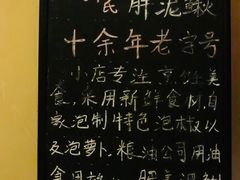 胖泥鳅
十余年老字号
小店专注烹饪美
食，采用新鲜食材，自
家泡制特色泡椒以
及泡萝卜，粮油公司用油